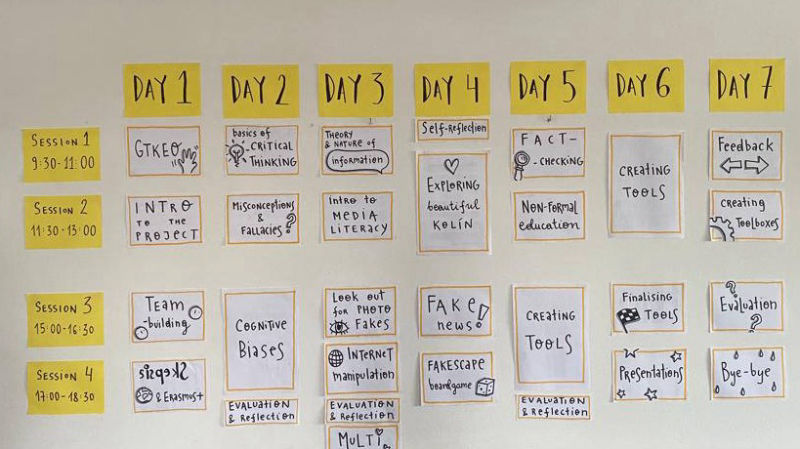 DAY 1
DAY 2
DAY 3
DAY 4
DAY 5
DAY 6
DAY 7
SESSION 1
9:30-11:00
GTKEO
basics of
-CRITICAL
THINKING
THEORY
& NATURE of
information
Self-Reflection
EXPLORING
beautiful
KOLÍN
FACT-
-CHECKING
CREATING
TOOLS
Feedback
SESSION 2
11:30-13:00
INTRO
TO THE
PROJECT
MISCONCEPTIONS
&
FALLACIES?
INTRO TO
MEDIA
LITERACY
NON-FORMAL
education
CREATING
Toolboxes
SESSION 3
15:00-16:30
TEAM
building
COGNITIVE
BIASES
LOOK OUT
FOR PHOTO
FAKES
FAKE
news!
CREATING
TOOLS
Finalising
TOOLS
?
Evaluation
?
SESSION 4
17:00-18:30
Skepsis
& ERASMUS+
INTERNET
manipulation
FAKESCAPE
boardgame
PRESENTATIONS
Bye-bye
EVALUATION
& Reflection
EVALUATION
& Reflection
EVALUATION
& Reflection
MULTI